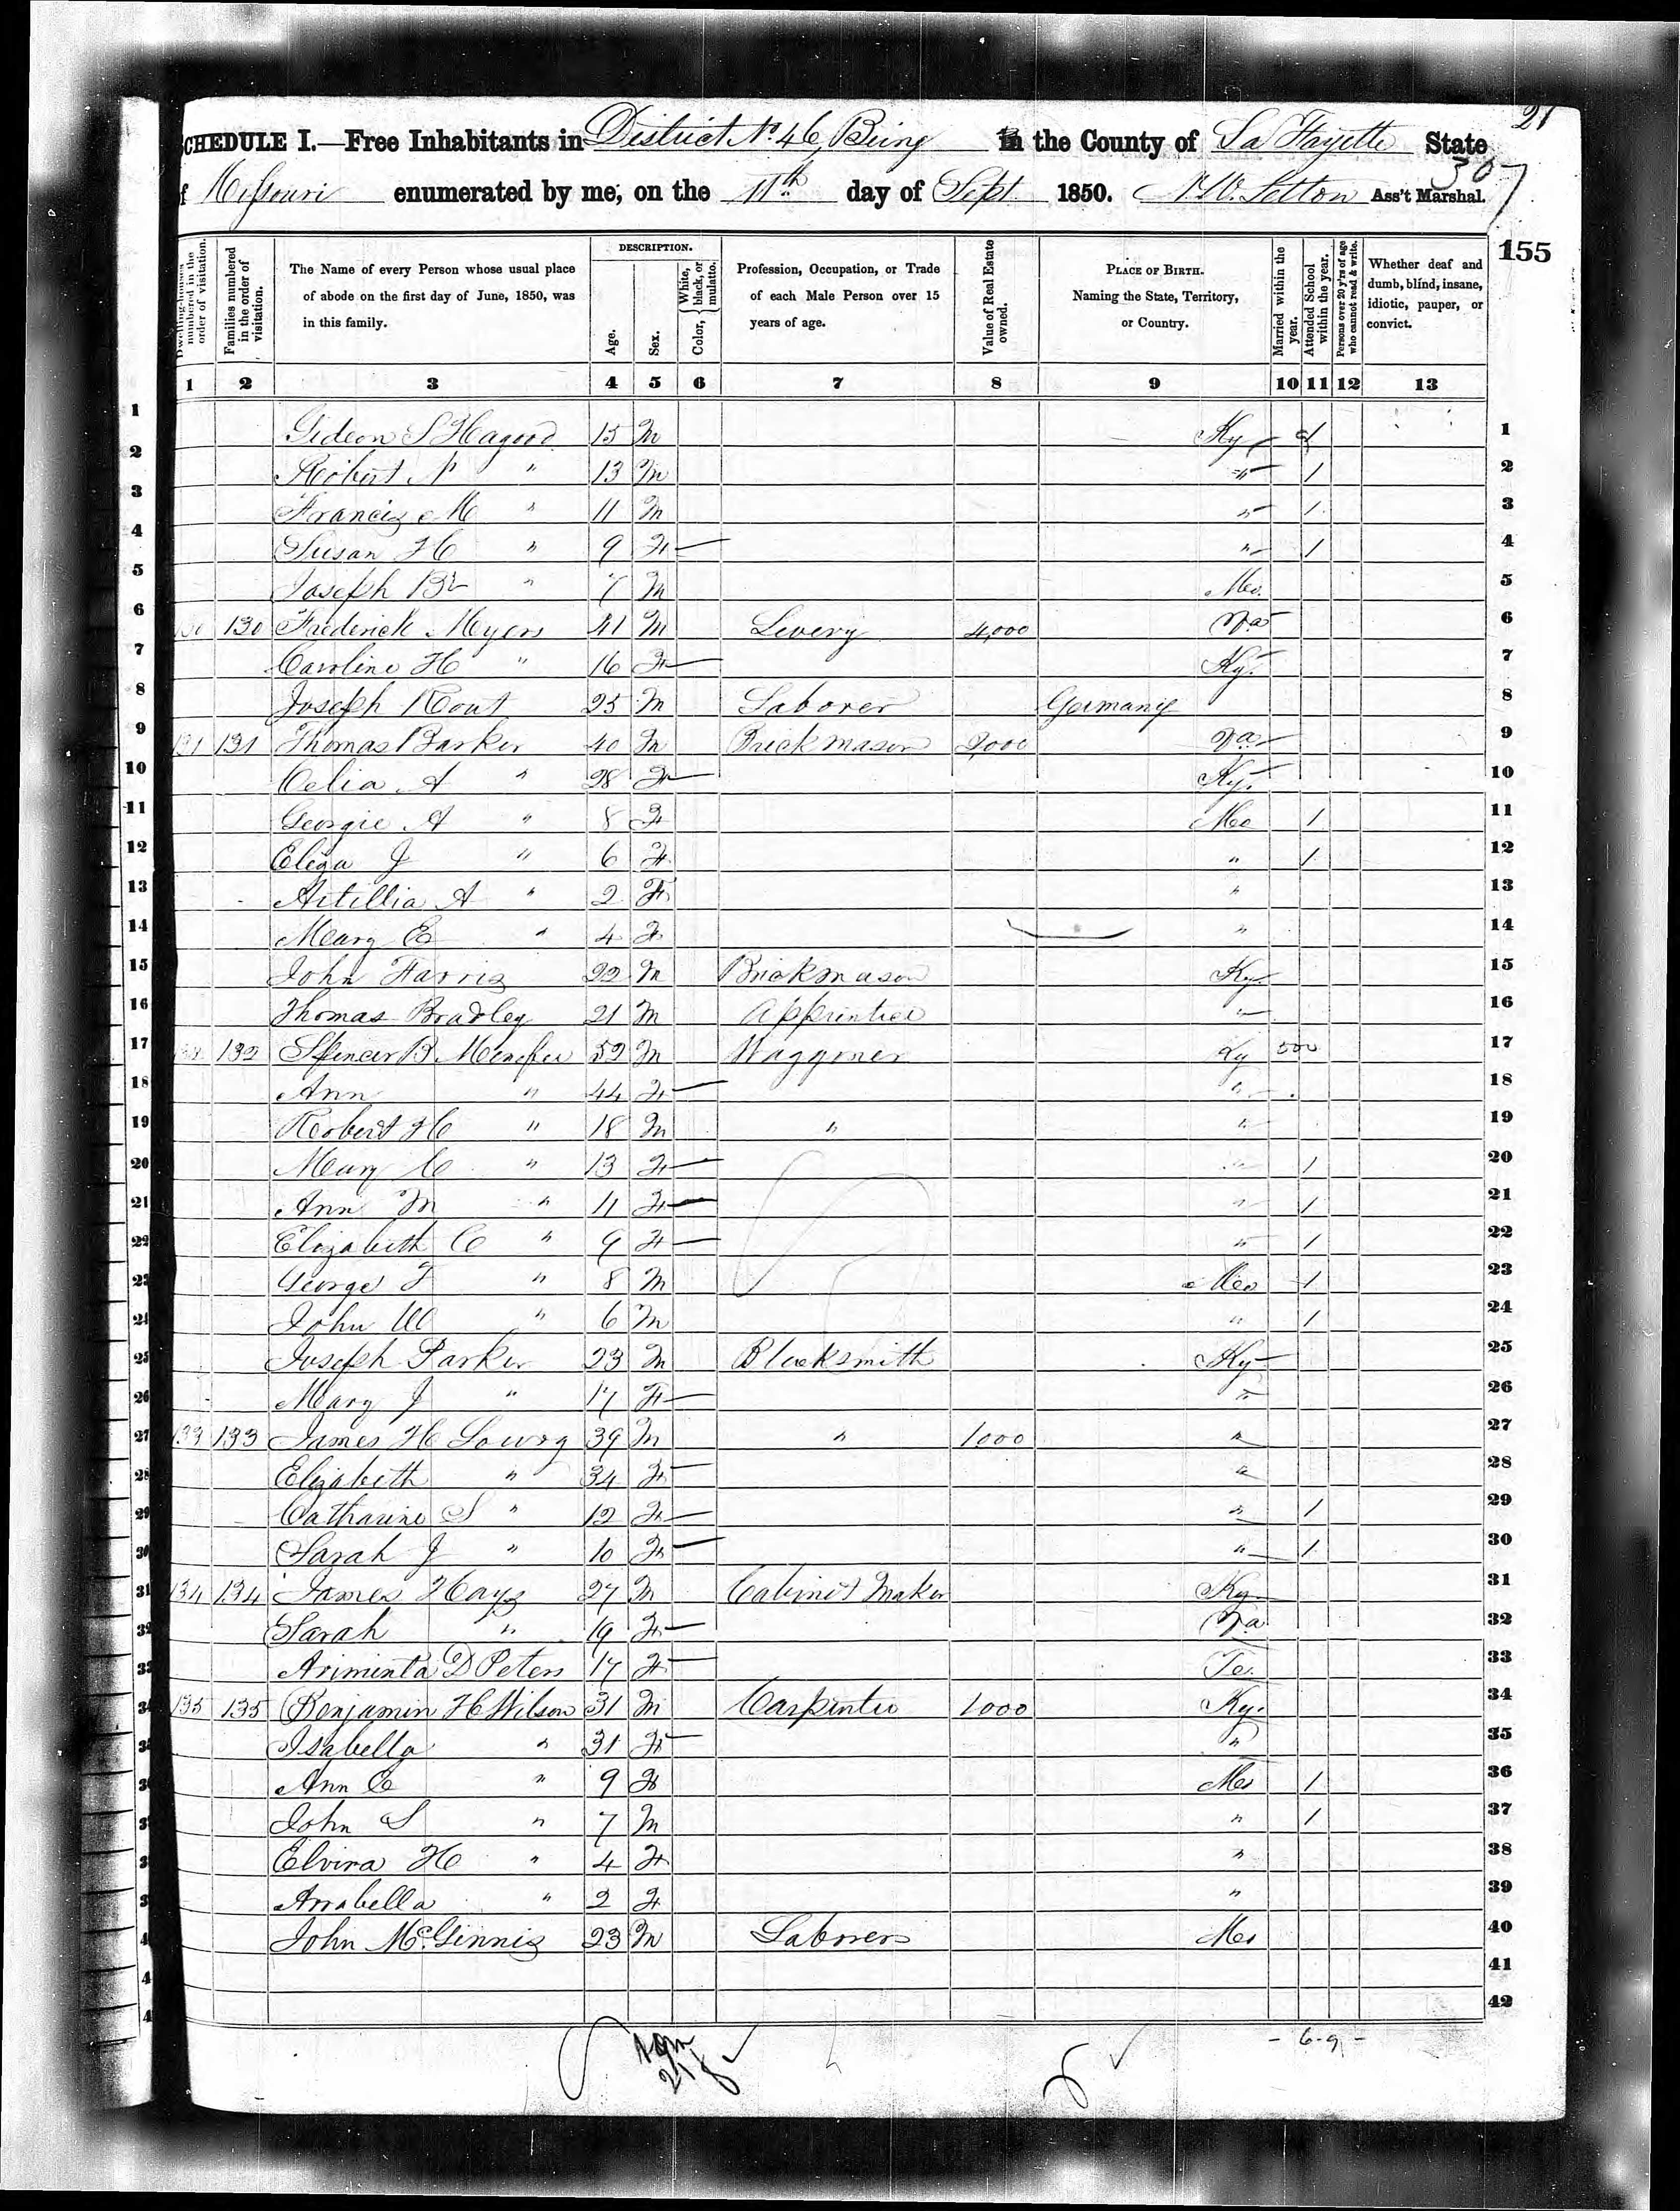 21
SCHEDULE I.—Free Inhabitants in District No. 46, Being in the County of La Fayette State
of Missouri enumerated by me, on the 11th day of Sept 1850. Ass't Marshal.
307
155
Dwelling-houses numbered in the order of visitation.
Families numbered in the order of visitation.
The Name of every Person whose usual place of abode on the first day of June, 1850, was in this family.
DESCRIPTION.
Age.
Sex.
Color, { White, black, or mulatto.
Profession, Occupation, or Trade of each Male Person over 15 years of age.
Value of Real Estate owned.
PLACE OF BIRTH. Naming the State, Territory, or Country.
Married within the year.
Attended School within the year.
Persons over 20 y'rs of age who cannot read & write.
Whether deaf and dumb, blind, insane, idiotic, pauper, or convict.
1 2 3 4 5 6 7 8 9 10 11 12 13
1 Gideon S Hagood 15 M Ky 1 1
2 Robert N " 13 M " 1 2
3 Francis M " 11 M " 1 3
4 Susan H " 9 F " 1 4
5 Joseph " 7 M Mo. 5
6 130 130 Frederick Myers 41 M Livery 4,000 Va 6
7 Caroline H " 16 F Ky. 7
8 Joseph Rout 25 M Laborer Germany 8
9 131 131 Thomas Barker 40 M Brickmason 2,000 Va 9
10 Celia A " 28 F Ky. 10
11 Georgie A " 8 F Mo 1 11
12 Eliza J " 6 F " 1 12
13 Artillia A " 2 F " 13
14 Mary E " 4 F " 14
15 John Farris 22 M Brickmason Ky. 15
16 Thomas Bradley 21 M Apprintice " 16
17 132 132 Spencer B. Menefee 52 M Waggoner Ky 500 17
18 Ann " 44 F " 18
19 Robert H " 18 M " " 19
20 Mary C " 13 F " 1 20
21 Ann M " 11 F " 1 21
22 Elizabeth C " 9 F " 1 22
23 George T " 8 M Mo 1 23
24 John W " 6 M " 1 24
25 Joseph Parker 23 M Blacksmith Ky 25
26 Mary J " 17 F " 26
27 133 133 James H Lowry 39 M " 1000 " 27
28 Elizabeth " 34 F " 28
29 Catharine S " 12 F " 1 29
30 Sarah J " 10 F " 1 30
31 134 134 James Hays 27 M Cabinet Maker Ky 31
32 Sarah " 19 F Va 32
33 Ariminta D Peters 17 F Te. 33
34 135 135 Benjamin H Wilson 31 M Carpinter 1000 Ky. 34
35 Isabella " 31 F " 35
36 Ann E " 9 F Mo 1 36
37 John S " 7 M " 1 37
38 Elvira H " 4 F " 38
39 Arrabella " 2 F " 39
40 John McGinnis 23 M Laborer Mo 40
41
42
- 6-9 -